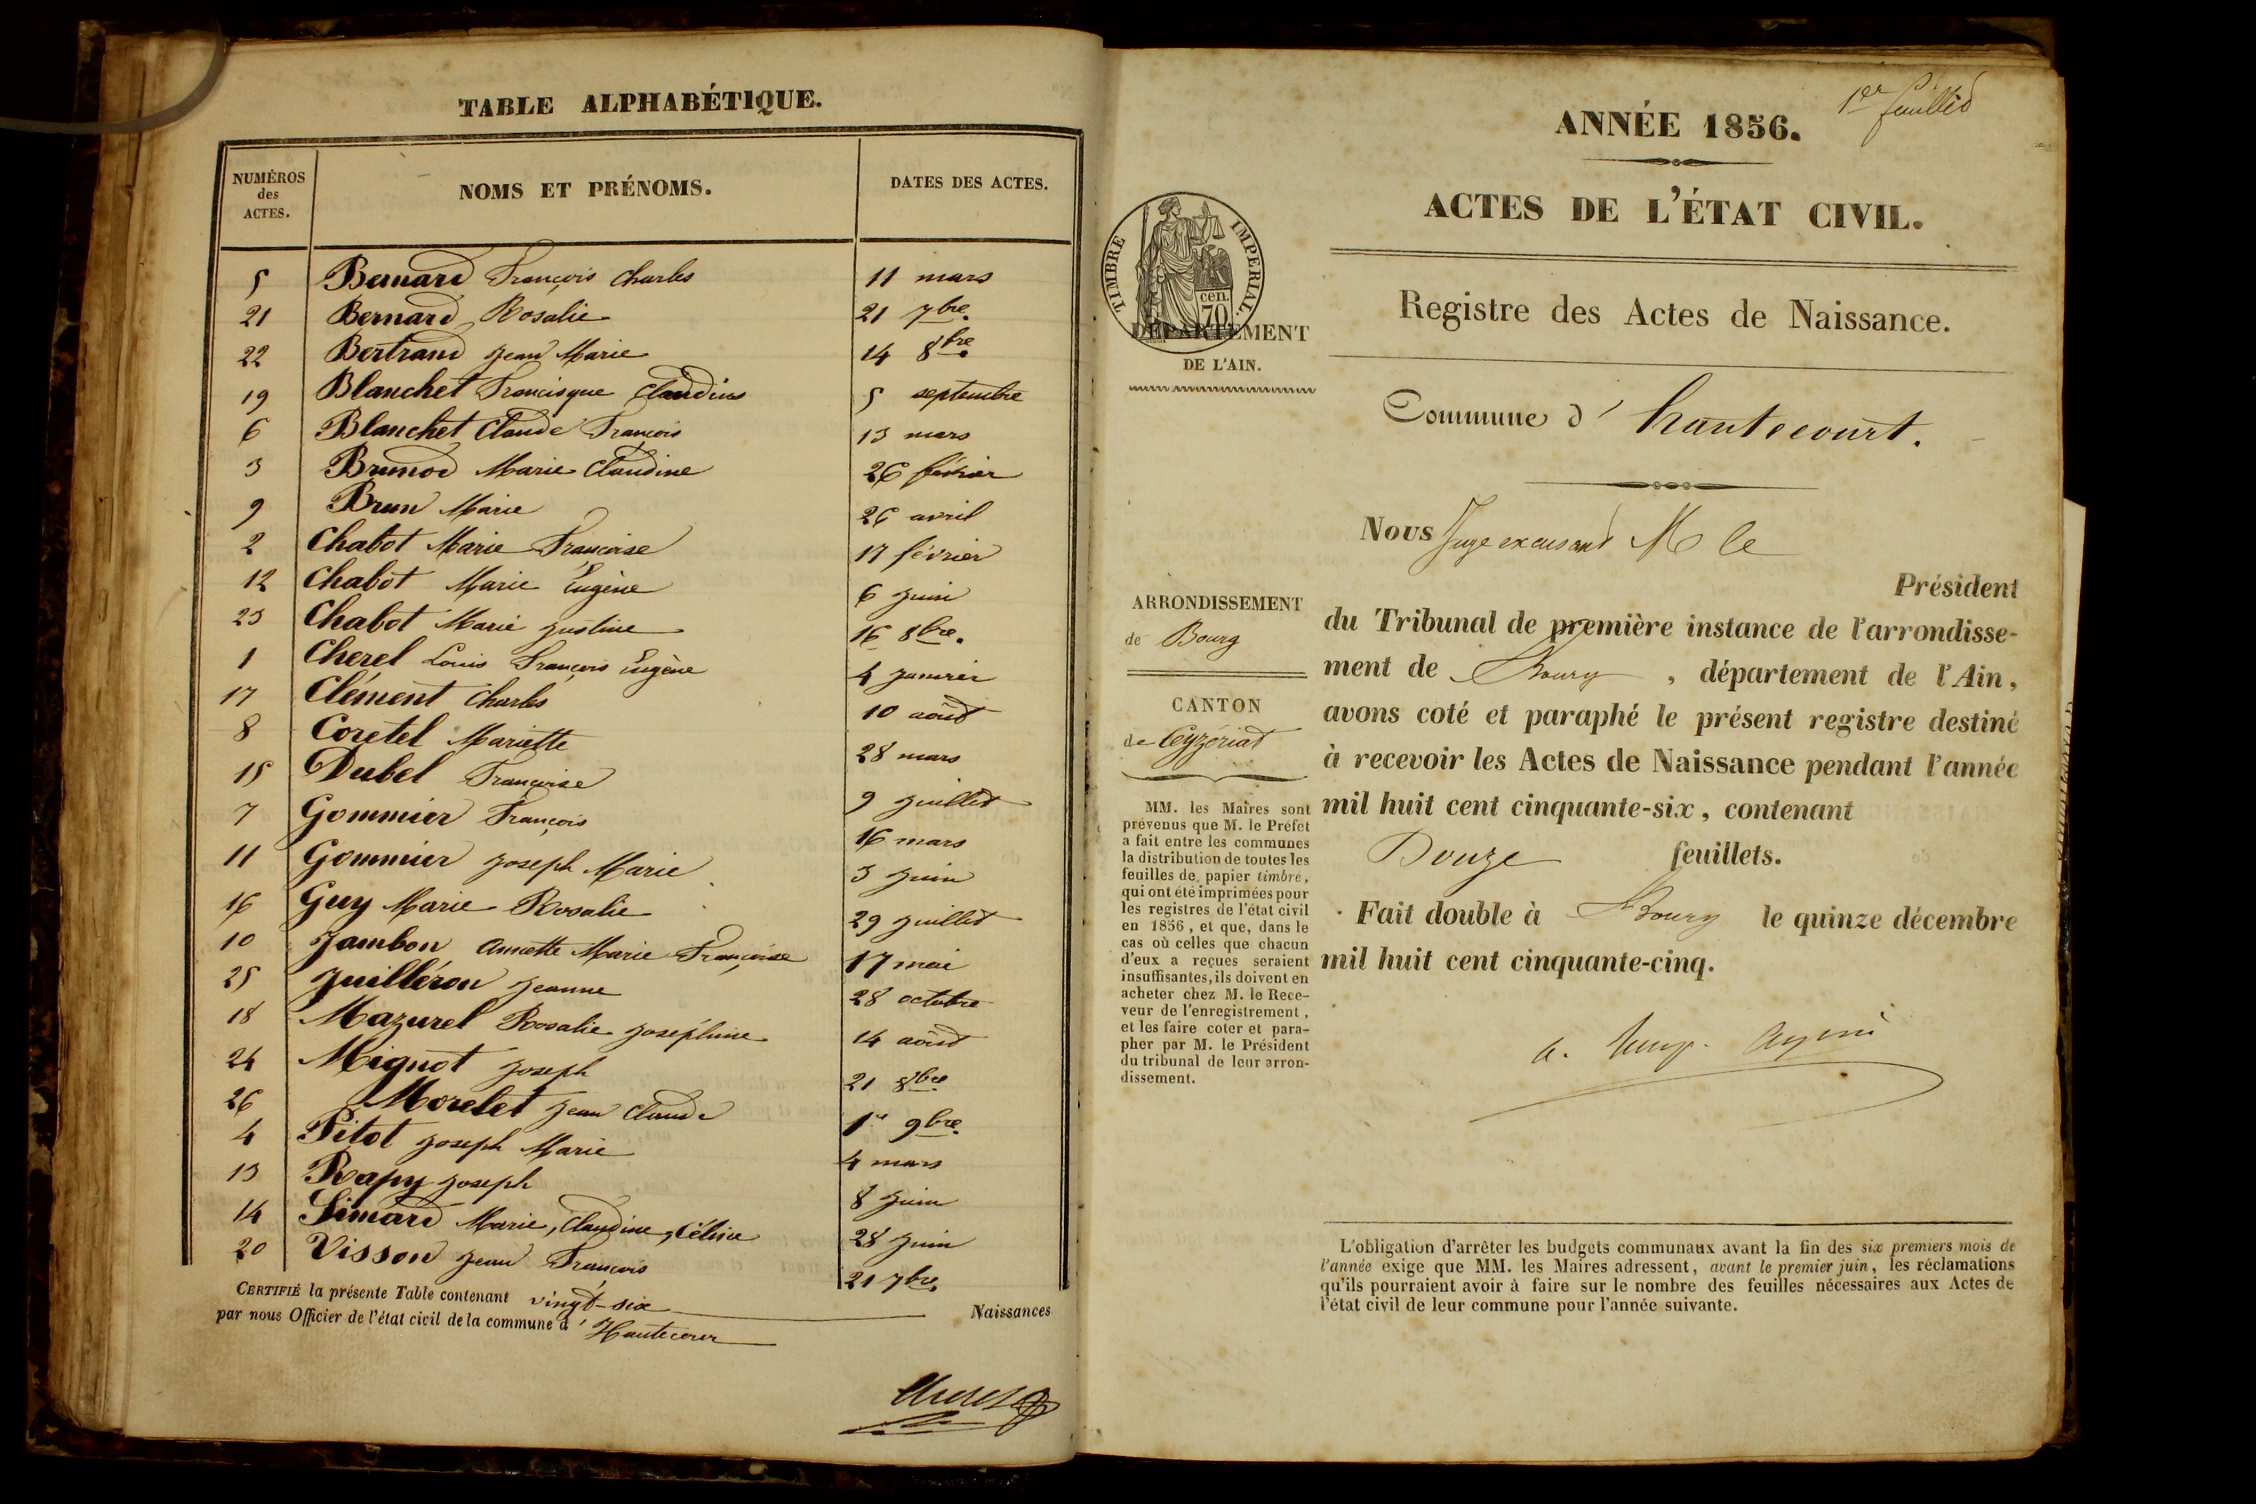 TABLE ALPHABÉTIQUE.
NUMÉROS des ACTES. NOMS ET PRÉNOMS. DATES DES ACTES.
5 Bernard François Charles 11 mars
21 Bernard Rosalie 21 7bre
22 Bertrand Jean Marie 14 8bre
19 Blanchet Francisque Claudius 5 septembre
6 Blanchet Claude François 13 mars
3 Brunod Marie Claudine 26 février
9 Brun Marie 26 avril
2 Chabot Marie Françoise 17 février
12 Chabot Marie Eugène 6 juin
23 Chabot Marie Justine 16 8bre.
1 Cherel Louis François Eugène 4 janvier
17 Clément Charles 10 août
8 Coretel Mariette 28 mars
15 Dubel Françoise 9 juillet
7 Gommier François 16 mars
11 Gommier Joseph Marie 3 juin
16 Guy Marie Rosalie 29 juillet
10 Jambon Annette Marie Françoise 17 mai
25 Juilléron Jeanne 28 octobre
18 Mazurel Rosalie Joséphine 14 août
24 Mignot Joseph 21 8bre
26 Morelet Jean Claude 1er 9bre.
4 Pitot Joseph Marie 4 mars
13 Rapy Joseph 8 juin
14 Simard Marie, Claudine, Célina 28 juin
20 Visson Jean François 21 7bre.
CERTIFIÉ la présente Table contenant vingt-six Naissances
par nous Officier de l'état civil de la commune d'
1er feuillet
ANNÉE 1856.
ACTES DE L'ÉTAT CIVIL.
TIMBRE IMPERIAL
cen. 70
DÉPARTEMENT
DE L'AIN.
Registre des Actes de Naissance.
Commune d' hautecourt.
ARRONDISSEMENT
de Bourg
CANTON
de Ceyzériat
MM. les Maires sont
prévenus que M. le Préfet
a fait entre les communes
la distribution de toutes les
feuilles de papier timbré,
qui ont été imprimées pour
les registres de l'état civil
en 1856, et que, dans le
cas où celles que chacun
d'eux a reçues seraient
insuffisantes, ils doivent en
acheter chez M. le Rece-
veur de l'enregistrement,
et les faire coter et para-
pher par M. le Président
du tribunal de leur arron-
dissement.
Nous Juge excusant M le
Président
du Tribunal de première instance de l'arrondisse-
ment de Bourg, département de l'Ain,
avons coté et paraphé le présent registre destiné
à recevoir les Actes de Naissance pendant l'année
mil huit cent cinquante-six, contenant
Douze feuillets.
Fait double à Bourg le quinze décembre
mil huit cent cinquante-cinq.
L'obligation d'arrêter les budgets communaux avant la fin des six premiers mois de
l'année exige que MM. les Maires adressent, avant le premier juin, les réclamations
qu'ils pourraient avoir à faire sur le nombre des feuilles nécessaires aux Actes de
l'état civil de leur commune pour l'année suivante.